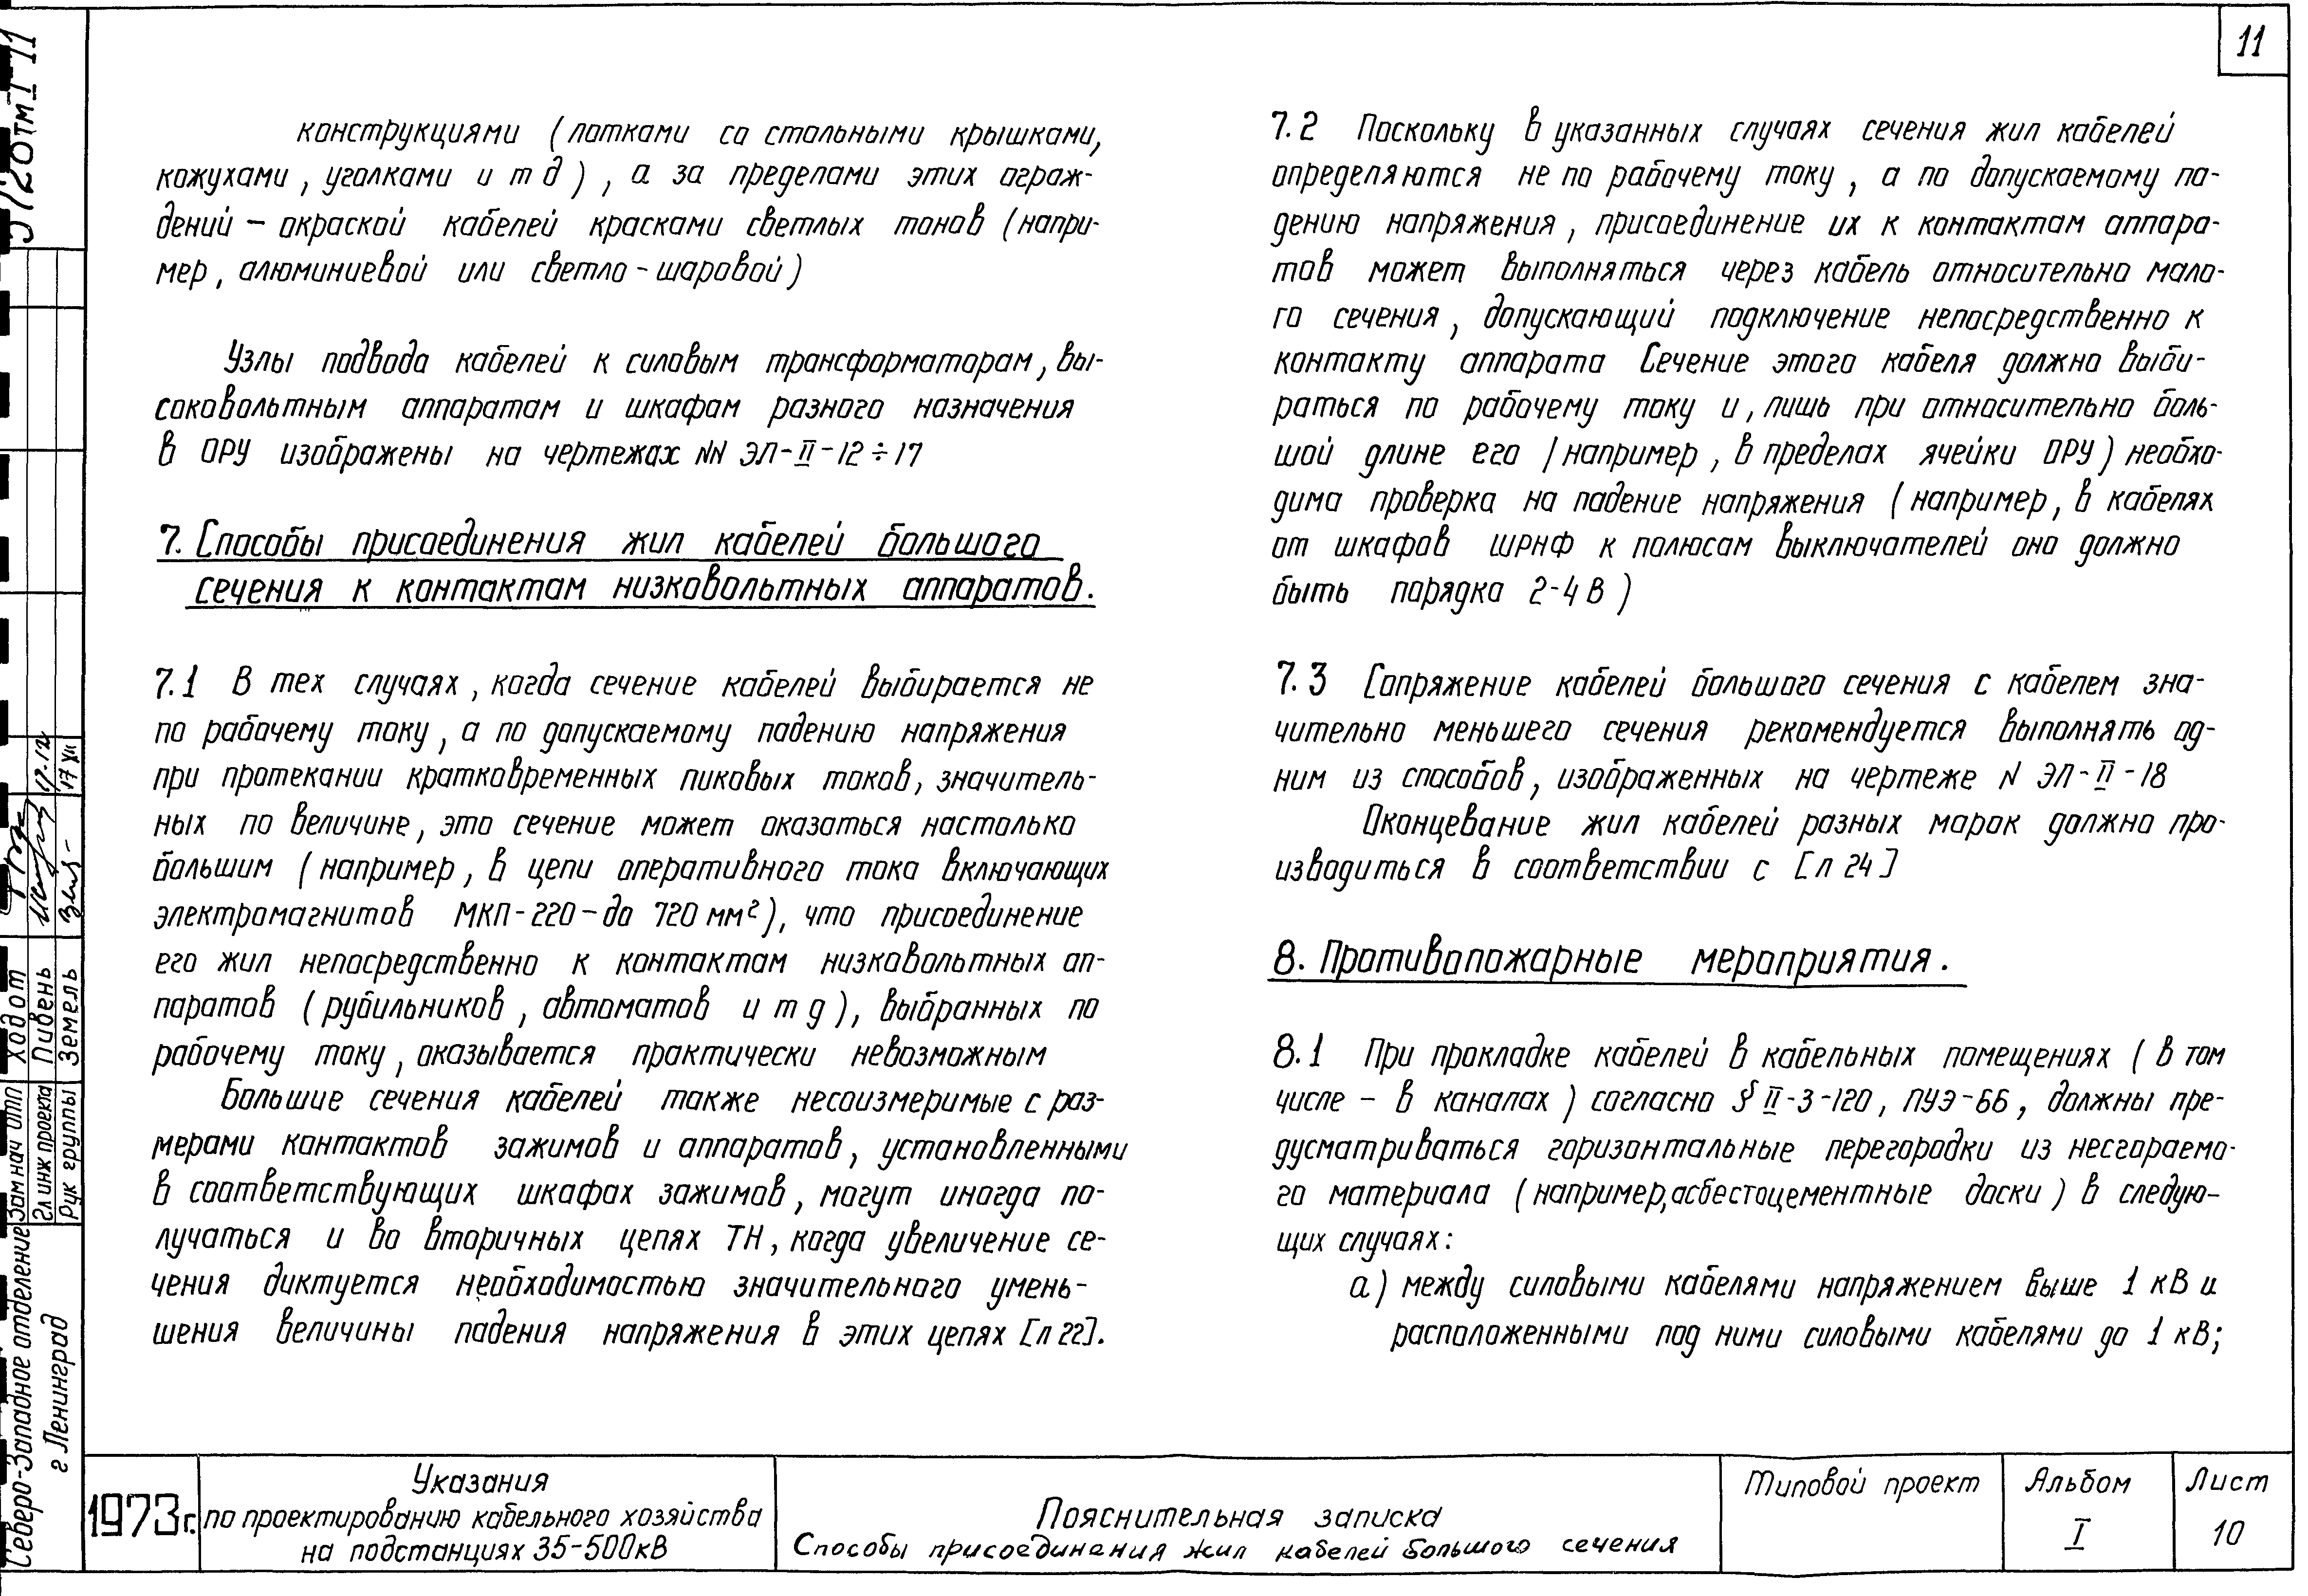 11
конструкциями (лотками со стальными крышками,
кожухами, уголками и т д), а за пределами этих ограж-
дений – окраской кабелей красками светлых тонов (напри-
мер, алюминиевой или светло-шаровой)
Узлы подвода кабелей к силовым трансформаторам, вы-
соковольтным аппаратам и шкафам разного назначения
в ОРУ изображены на чертежах NN ЭЛ-II-12÷17
7. Способы присоединения жил кабелей большого
сечения к контактам низковольтных аппаратов.
7.1 В тех случаях, когда сечение кабелей выбирается не
по рабочему току, а по допускаемому падению напряжения
при протекании кратковременных пиковых токов, значитель-
ных по величине, это сечение может оказаться настолько
большим (например, в цепи оперативного тока включающих
электромагнитов МКП-220-до 720 мм²), что присоединение
его жил непосредственно к контактам низковольтных ап-
паратов (рубильников, автоматов и т д), выбранных по
рабочему току, оказывается практически невозможным
Большие сечения кабелей также несоизмеримые с раз-
мерами контактов зажимов и аппаратов, установленными
в соответствующих шкафах зажимов, могут иногда по-
лучаться и во вторичных цепях ТН, когда увеличение се-
чения диктуется необходимостью значительного умень-
шения величины падения напряжения в этих цепях [л 22].
7.2 Поскольку в указанных случаях сечения жил кабелей
определяются не по рабочему току, а по допускаемому па-
дению напряжения, присоединение их к контактам аппара-
тов может выполняться через кабель относительно мало-
го сечения, допускающий подключение непосредственно к
контакту аппарата Сечение этого кабеля должно выби-
раться по рабочему току и, лишь при относительно боль-
шой длине его (например, в пределах ячейки ОРУ) необхо-
дима проверка на падение напряжения (например, в кабелях
от шкафов ШРНФ к полюсам выключателей оно должно
быть порядка 2-4 В)
7.3 Сопряжение кабелей большого сечения с кабелем зна-
чительно меньшего сечения рекомендуется выполнять од-
ним из способов, изображенных на чертеже N ЭЛ-II-18
Оконцевание жил кабелей разных марок должно про-
изводиться в соответствии с [л 24]
8. Противопожарные мероприятия.
8.1 При прокладке кабелей в кабельных помещениях (в том
числе – в каналах) согласно § II-3-120, ПУЭ-66, должны пре-
дусматриваться горизонтальные перегородки из несгораемо-
го материала (например, асбестоцементные доски) в следую-
щих случаях:
а) между силовыми кабелями напряжением выше 1 кВ и
расположенными под ними силовыми кабелями до 1 кВ;
Северо-Западное отделение
г Ленинград
Зам нач ОТП Ходот
Гл инж проекта Пивень
Рук группы Земель
1973г.
Указания
по проектированию кабельного хозяйства
на подстанциях 35-500кВ
Пояснительная записка
Способы присоединения жил кабелей большого сечения
Типовой проект
Альбом
I
Лист
10